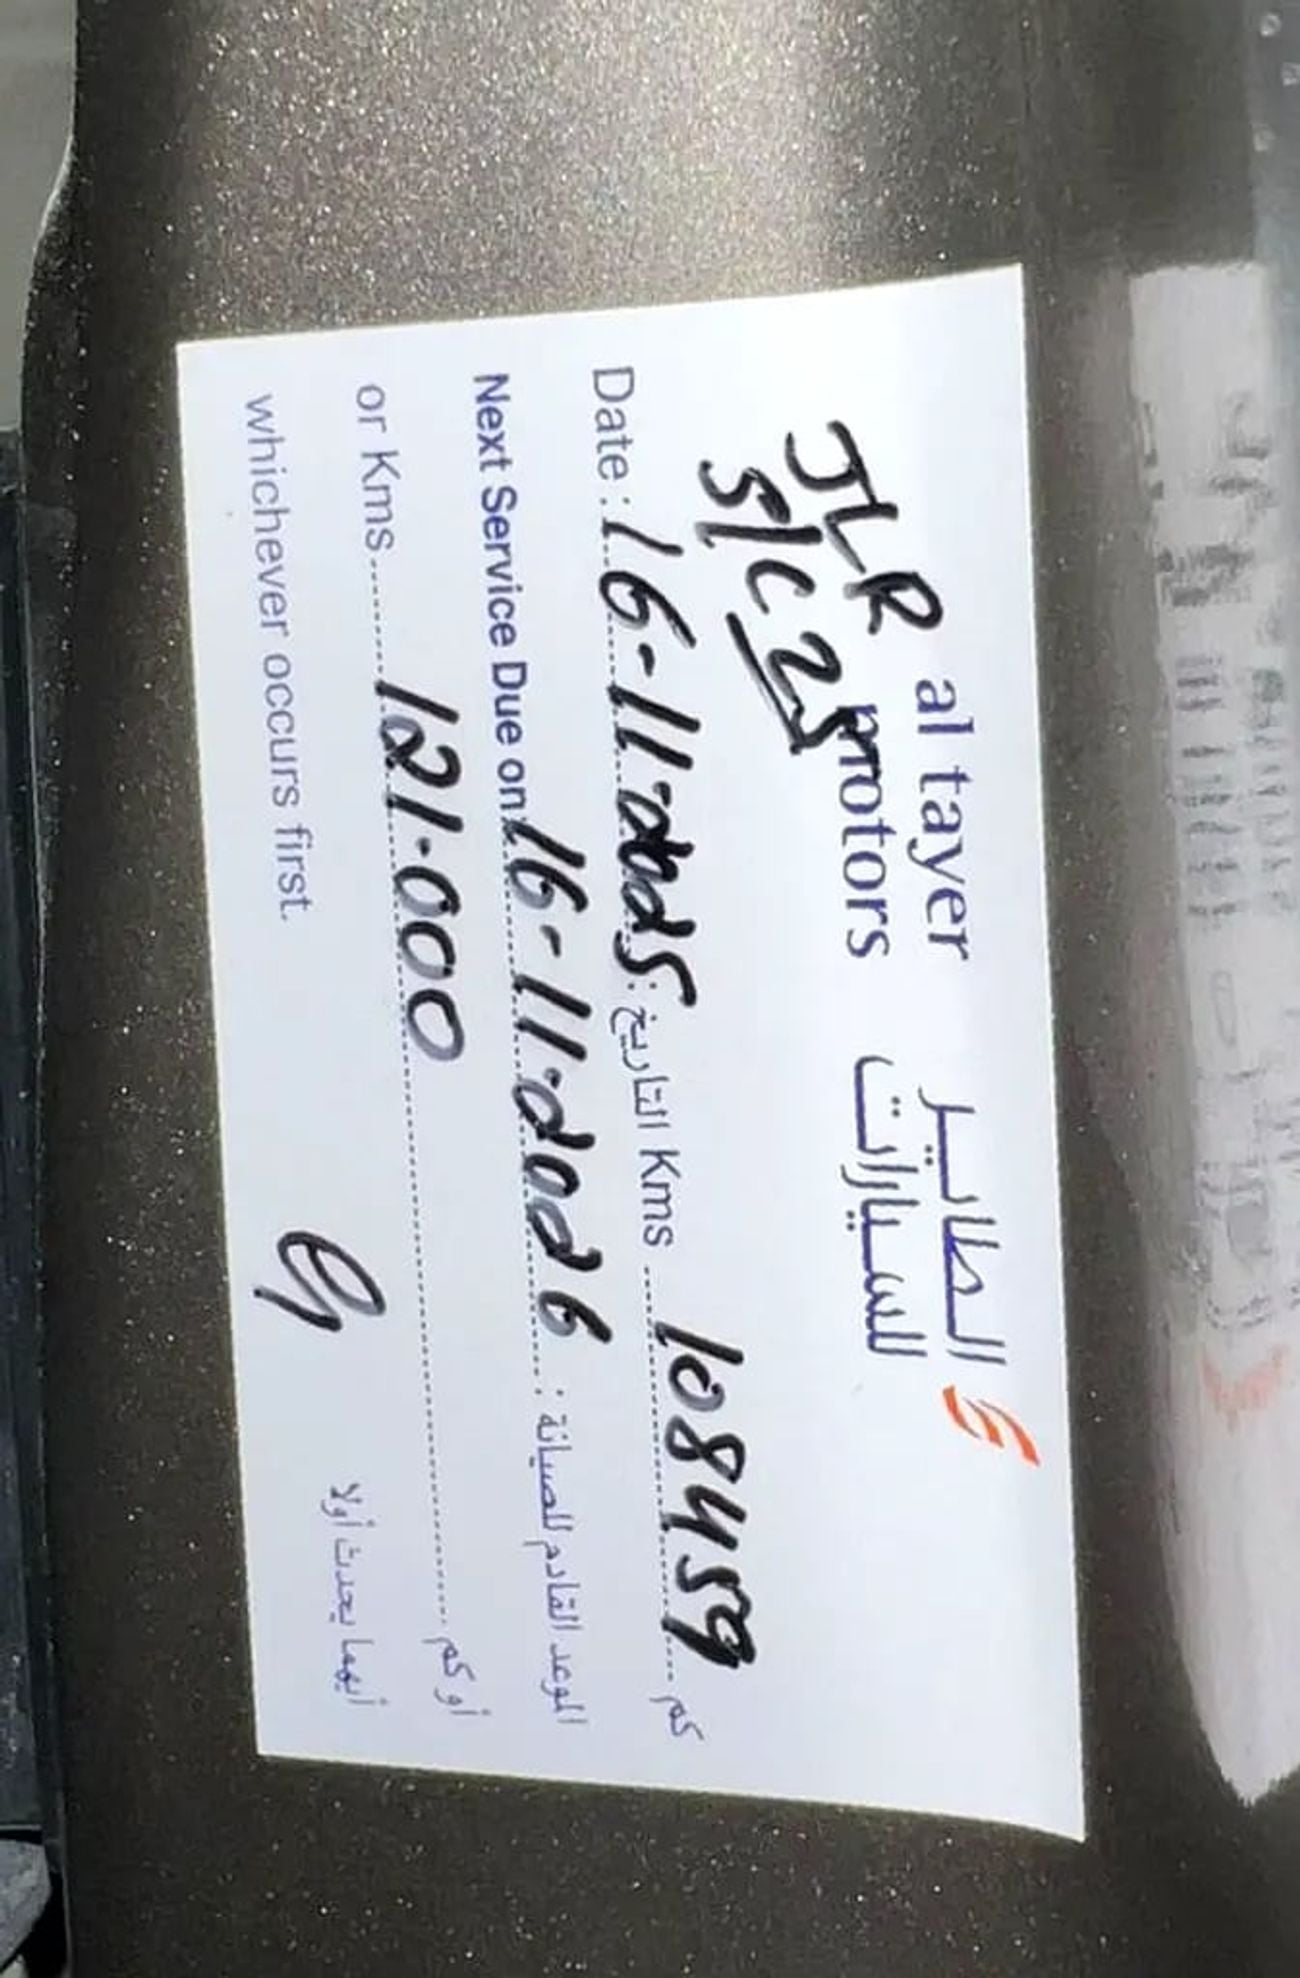 JLR
S/C 25
al tayer
motors
الطاير
للسيارات
Date : 16-11-2025 : التاريخ Kms 108459 كم
Next Service Due on: 16-11-2026 : الموعد القادم للصيانة
or Kms 121.000 أو كم
whichever occurs first. أيهما يحدث أولا